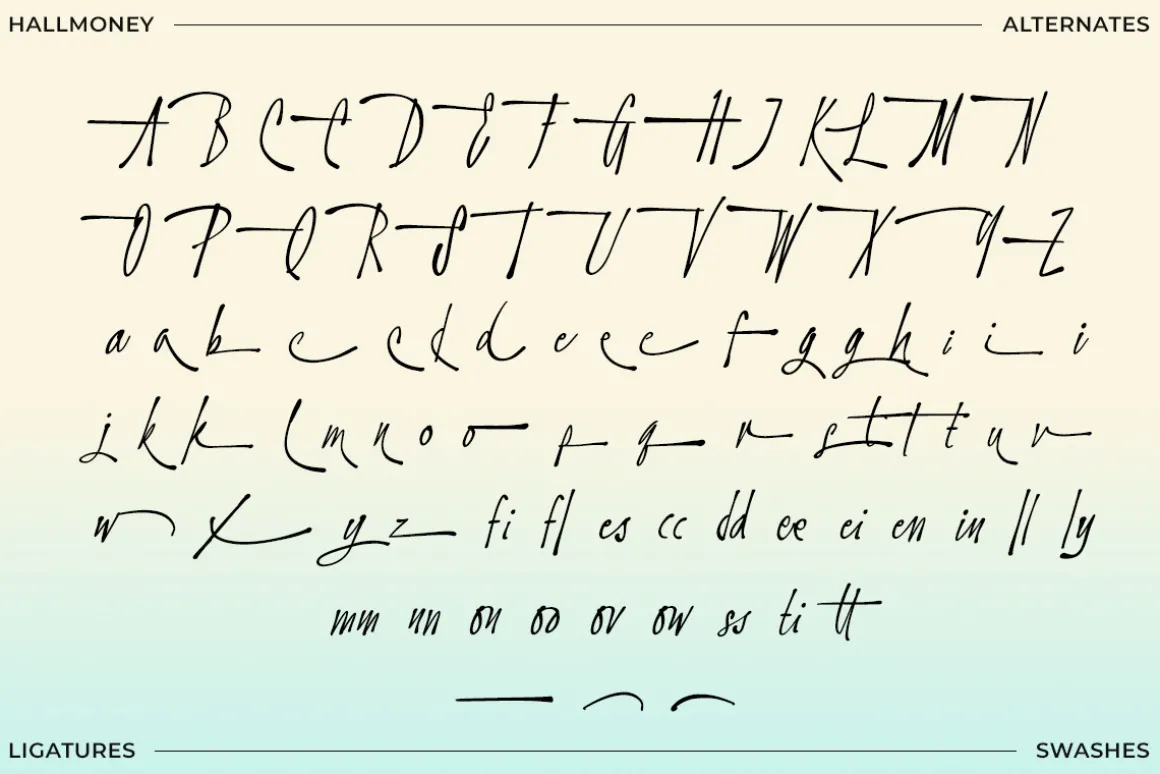 HALLMONEY ALTERNATES
A B C C D E F G H J K L M N
O P Q R S T U V W X Y Z
a a b c c d d e e e f g g h i i i
j k k l m n o o p q r s t t t u v
w x y z fi fl es cc dd ee ei en in ll ly
mm nn on oo ov ow ss ti tt
LIGATURES SWASHES